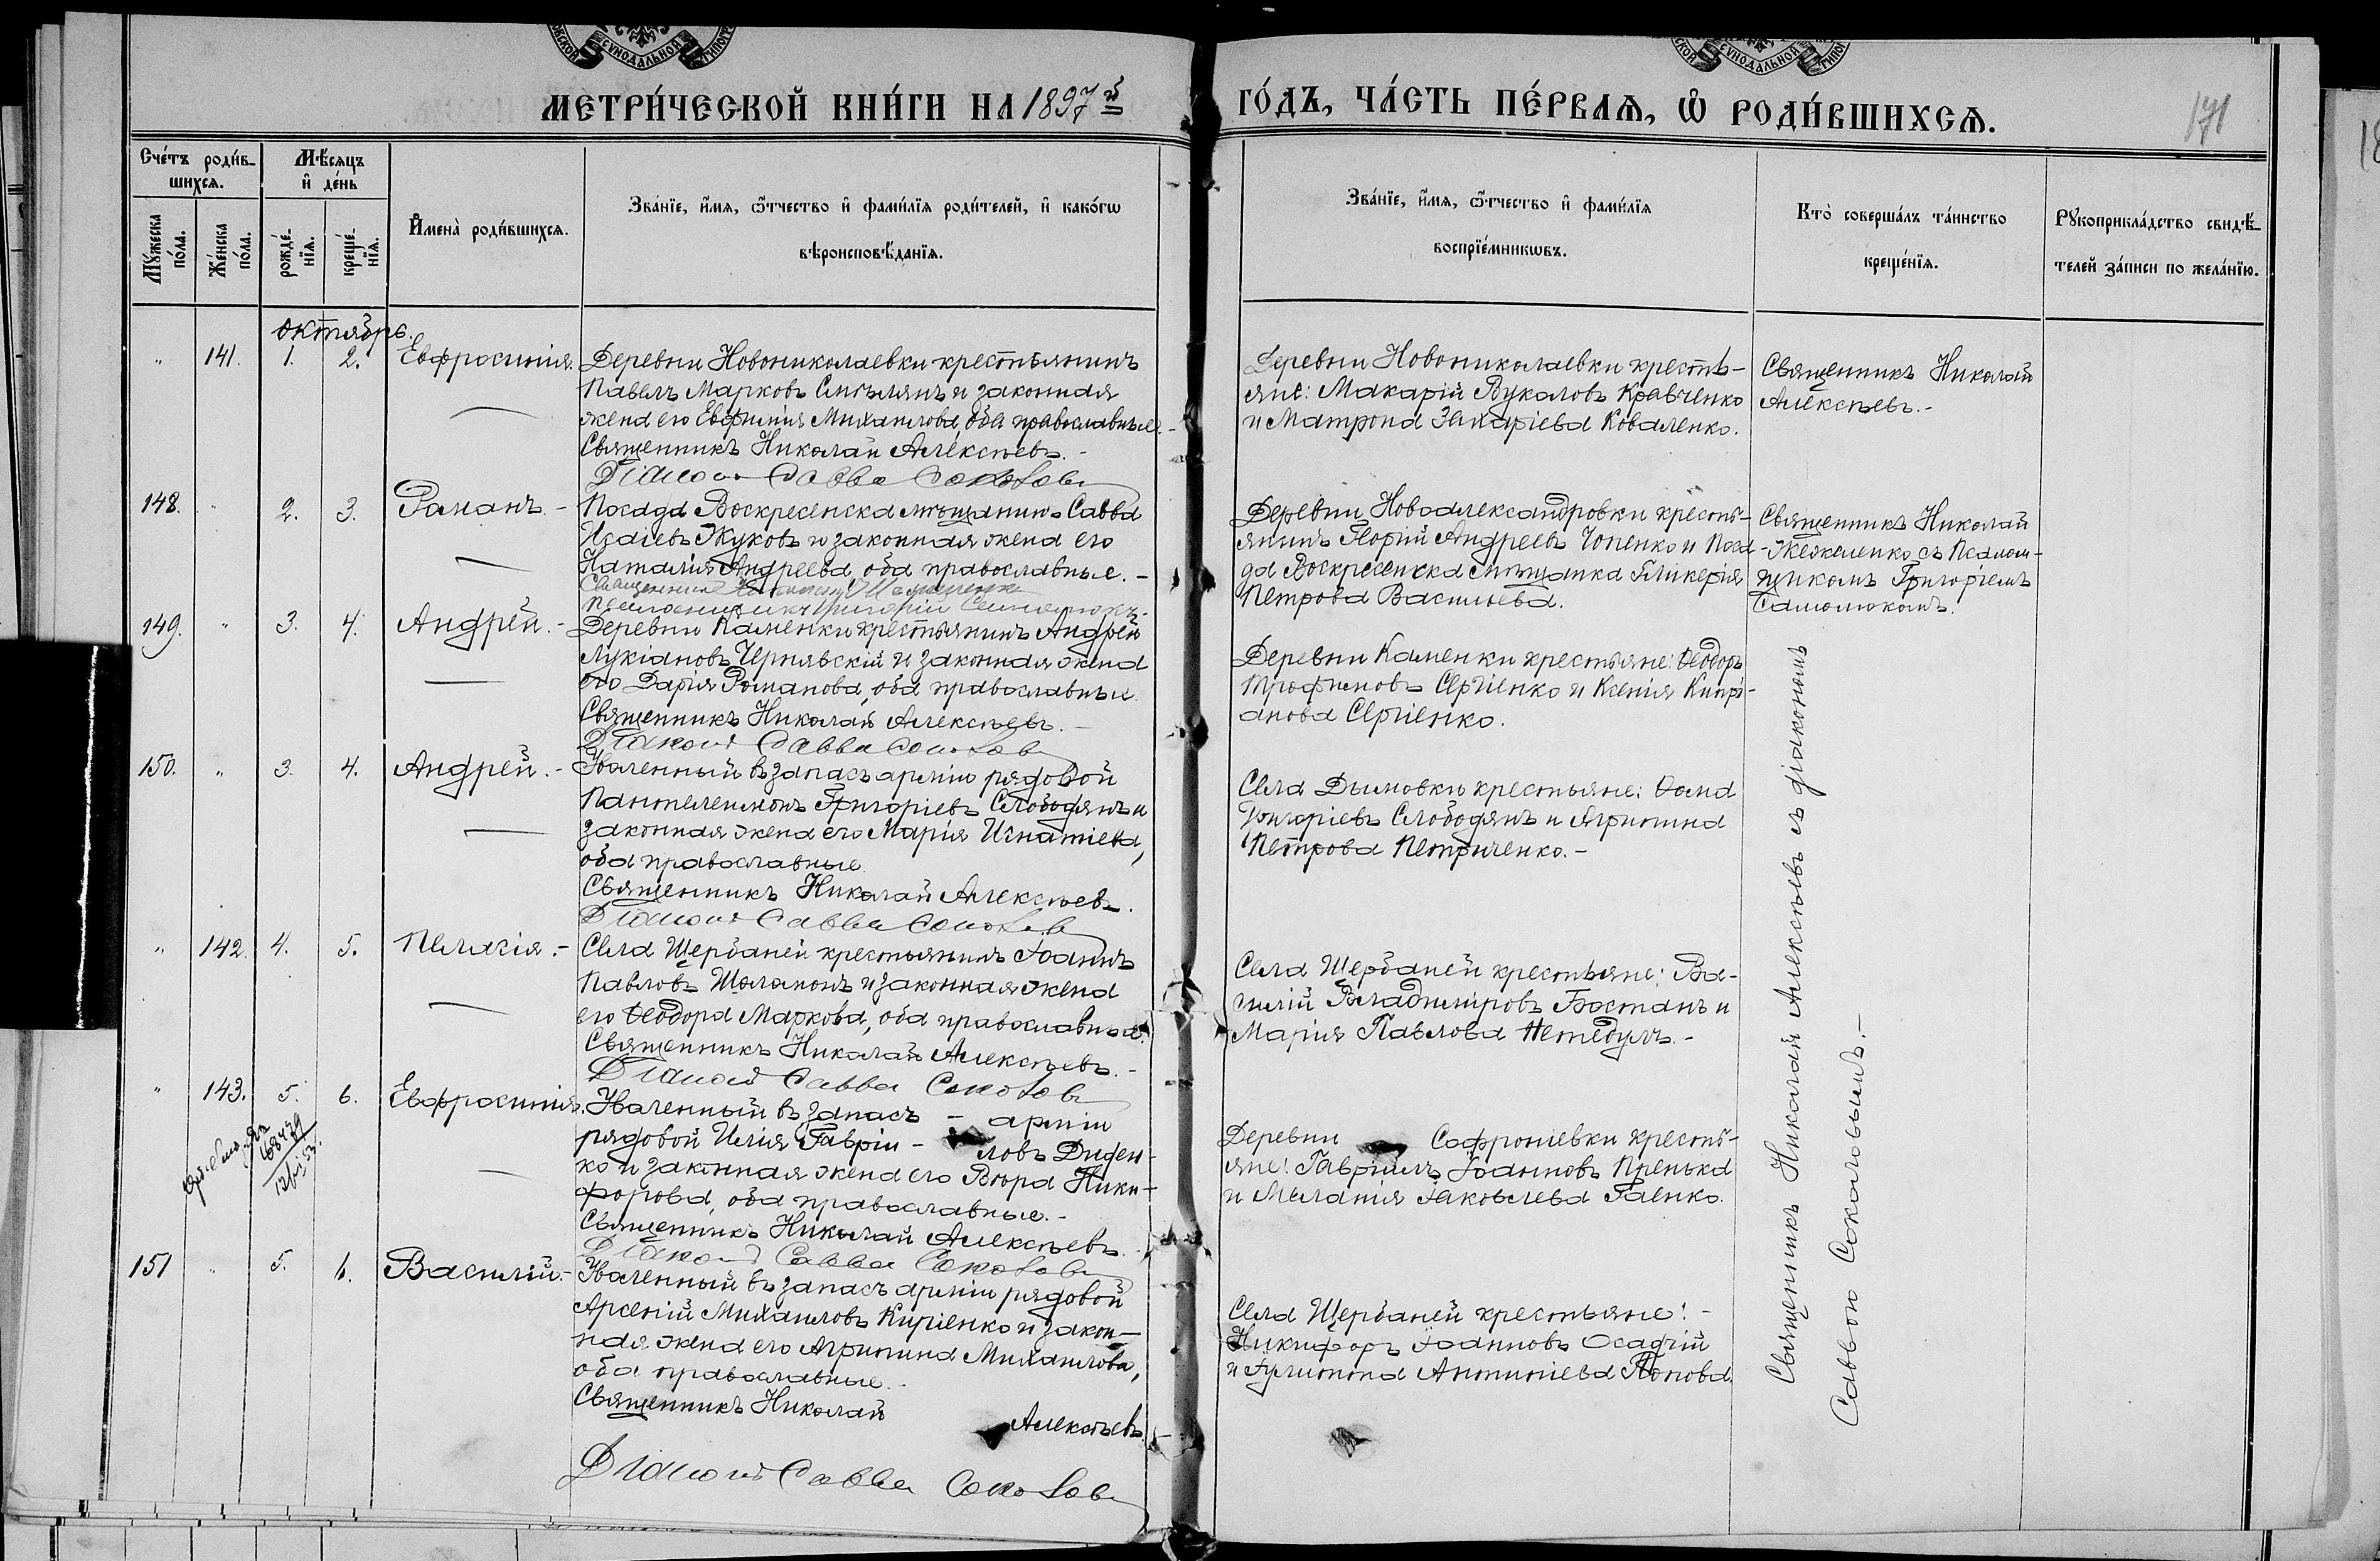 МЕТРИ́ЧЕСКОЙ КНИ́ГИ НА 1897й
ГО́ДЪ, ЧА́СТЬ ПЕ́РВАѦ, Ѡ РОДИ́ВШИХСѦ.
171
Сче́тъ роди́в-
шихсѧ.
Мѣ́сяцъ
и҆ де́нь
Мꙋ́жеска
по́ла.
Же́нска
по́ла.
рожде́-
нїѧ.
креще́-
нїѧ.
И҆мена̀ роди́вшихсѧ.
Зва́нїе, и҆́мѧ, ѻ҆́тчество и҆ фами́лїѧ роди́телей, и҆ како́гѡ
вѣроисповѣ́данїѧ.
Зва́нїе, и҆́мѧ, ѻ҆́тчество и҆ фами́лїѧ
воспрїе́мникѡвъ.
Кто̀ соверша́лъ та́инство
креще́нїѧ.
Рꙋкоприкла́дство свидѣ́-
телей за́писи по жела́нїю.
Октябрь.
" 141. 1. 2. Евфросинія.
Деревни Новониколаевки крестьянинъ
Павелъ Марковъ Смѣлянъ и законная
жена его Евфимія Михаилова, оба православные.-
Священникъ Николай Алексѣевъ.-
Діаконъ Савва Соколовъ
Деревни Новониколаевки кресть-
яне: Макарій Вукаловъ Кравченко
и Матрона Захаріева Коваленко.
Священникъ Николай
Алексѣевъ.-
148. " 2. 3. Романъ.-
Посада Воскресенска мѣщанинъ Савва
Исаіевъ Жуковъ и законная жена его
Наталія Андреева, оба православные.-
Священникъ Николай
Псаломщикъ Григорій Самотюкъ.
Деревни Новоалександровки кресть-
янинъ Георгій Андреевъ Чопенко и Поса-
да Воскресенска мѣщанка Гликерія
Петрова Васильева.
Священникъ Николай
съ Псалом-
щикомъ Григоріемъ
Самотюкомъ.
149. " 3. 4. Андрей.-
Деревни Каменки крестьянинъ Андрей
Лукіановъ Чернявскій и законная жена
его Дарія Романова, оба православные
Священникъ Николай Алексѣевъ.-
Діаконъ Савва Соколовъ
Деревни Каменки крестьяне: Ѳеодоръ
Трофимовъ Сергіенко и Ксенія Кипрі-
анова Сергіенко.
150. " 3. 4. Андрей.-
Уволенный въ запасъ арміи рядовой
Пантелеимонъ Григоріевъ Слободянъ и
законная жена его Марія Игнатіева,
оба православные.
Священникъ Николай Алексѣевъ.
Діаконъ Савва Соколовъ
Села Дымовки крестьяне: Ѳома
Григоріевъ Слободянъ и Агрипина
Петрова Петриченко.-
" 142. 4. 5. Пелагія.-
Села Щербаней крестьянинъ Іоаннъ
Павловъ Шоломонъ и законная жена
его Ѳеодора Маркова, оба православные.
Священникъ Николай Алексѣевъ.-
Діаконъ Савва Соколовъ
Села Щербаней крестьяне: Ва-
силій Владиміровъ Бостанъ и
Марія Павлова Нетедулъ.-
" 143. 5. 6. Евфросинія.
Уволенный въ запасъ - арміи
рядовой Илія Гавріи- ловъ Диден-
ко и законная жена его Вѣра Ники-
форова, оба православные.-
Священникъ Николай Алексѣевъ.
Діаконъ Савва Соколовъ
Деревни Софроніевки кресть-
яне: Гавріилъ Іоанновъ Пренька
и Меланія Іаковлева Гаенко.
151 " 5. 6. Василій.-
Уволенный въ запасъ арміи рядовой
Арсеній Михаиловъ Киріенко и закон-
ная жена его Агрипина Михаилова,
оба православные.-
Священникъ Николай
Алексѣевъ.
Діаконъ Савва Соколовъ
Села Щербаней крестьяне: -
Никифоръ Іоанновъ Осадчій
и Гулитта Антоніева Попова.
Священникъ Николай Алексѣевъ съ діакономъ
Саввою Соколовымъ.-